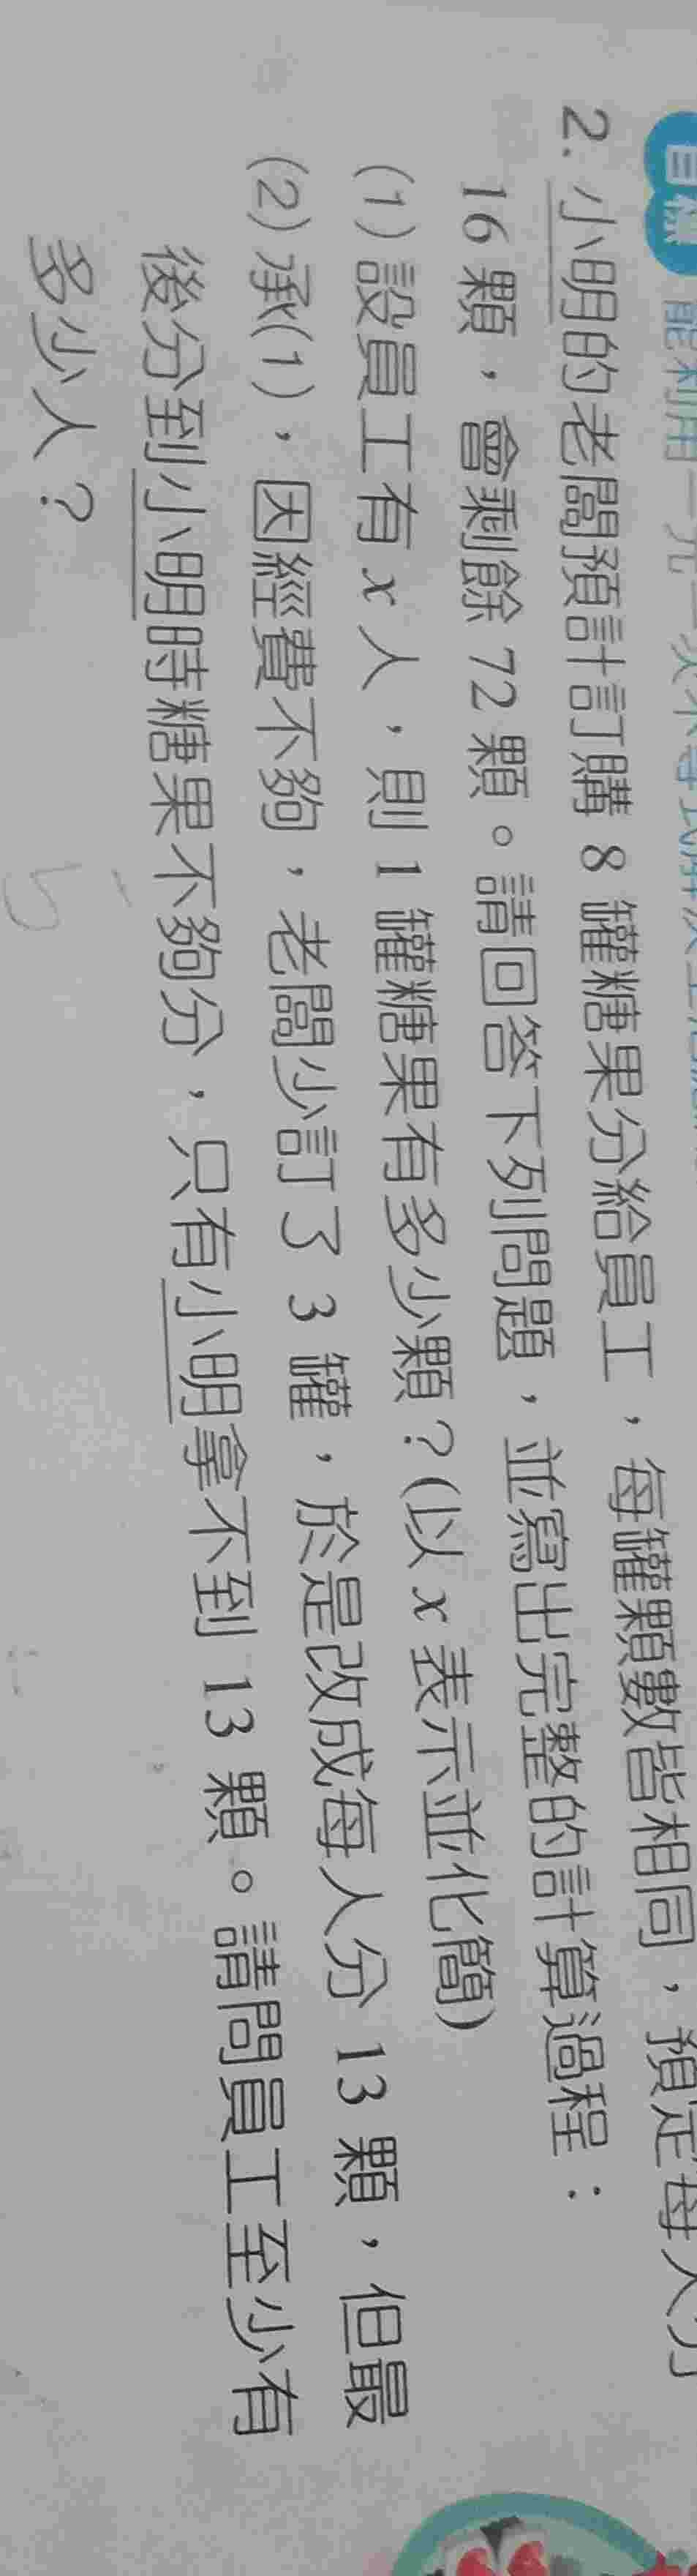 目標 能利用一元一次不等式解決生活
2. 小明的老闆預計訂購 8 罐糖果分給員工，每罐顆數皆相同，預定每人分
16 顆，會剩餘 72 顆。請回答下列問題，並寫出完整的計算過程：
(1) 設員工有 x 人，則 1 罐糖果有多少顆？(以 x 表示並化簡)
(2) 承(1)，因經費不夠，老闆少訂了 3 罐，於是改成每人分 13 顆，但最
後分到小明時糖果不夠分，只有小明拿不到 13 顆。請問員工至少有
多少人？